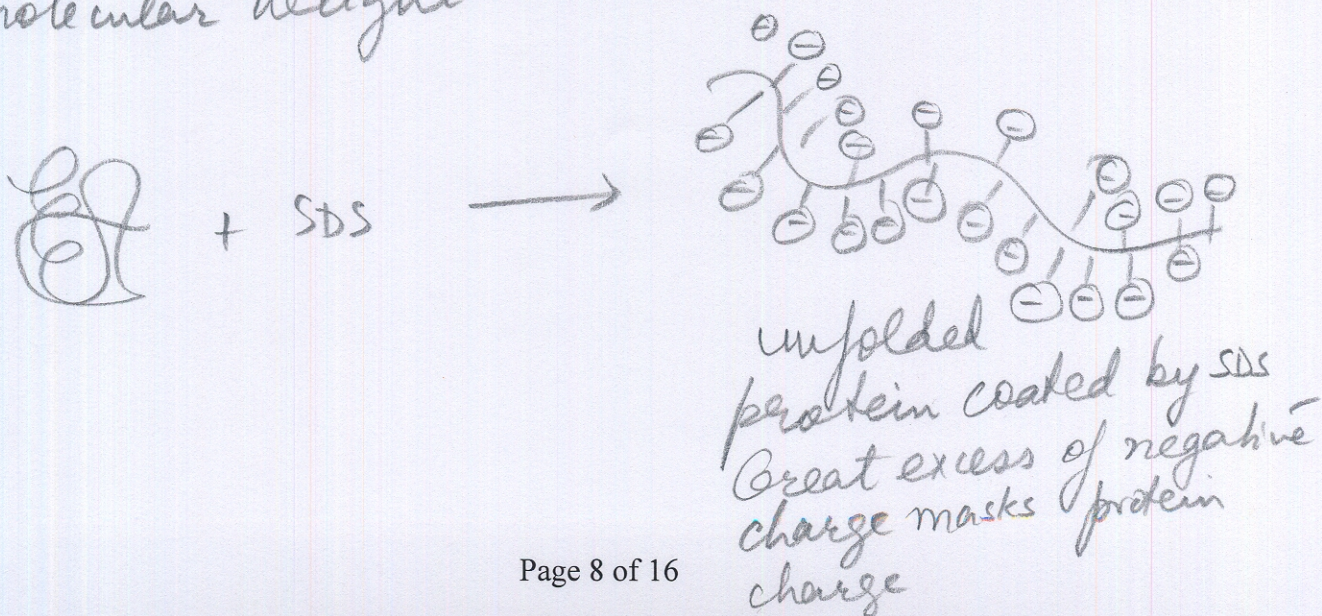 molecular weight
+ SDS
unfolded
protein coated by SDS
Great excess of negative
charge masks protein
charge
Page 8 of 16